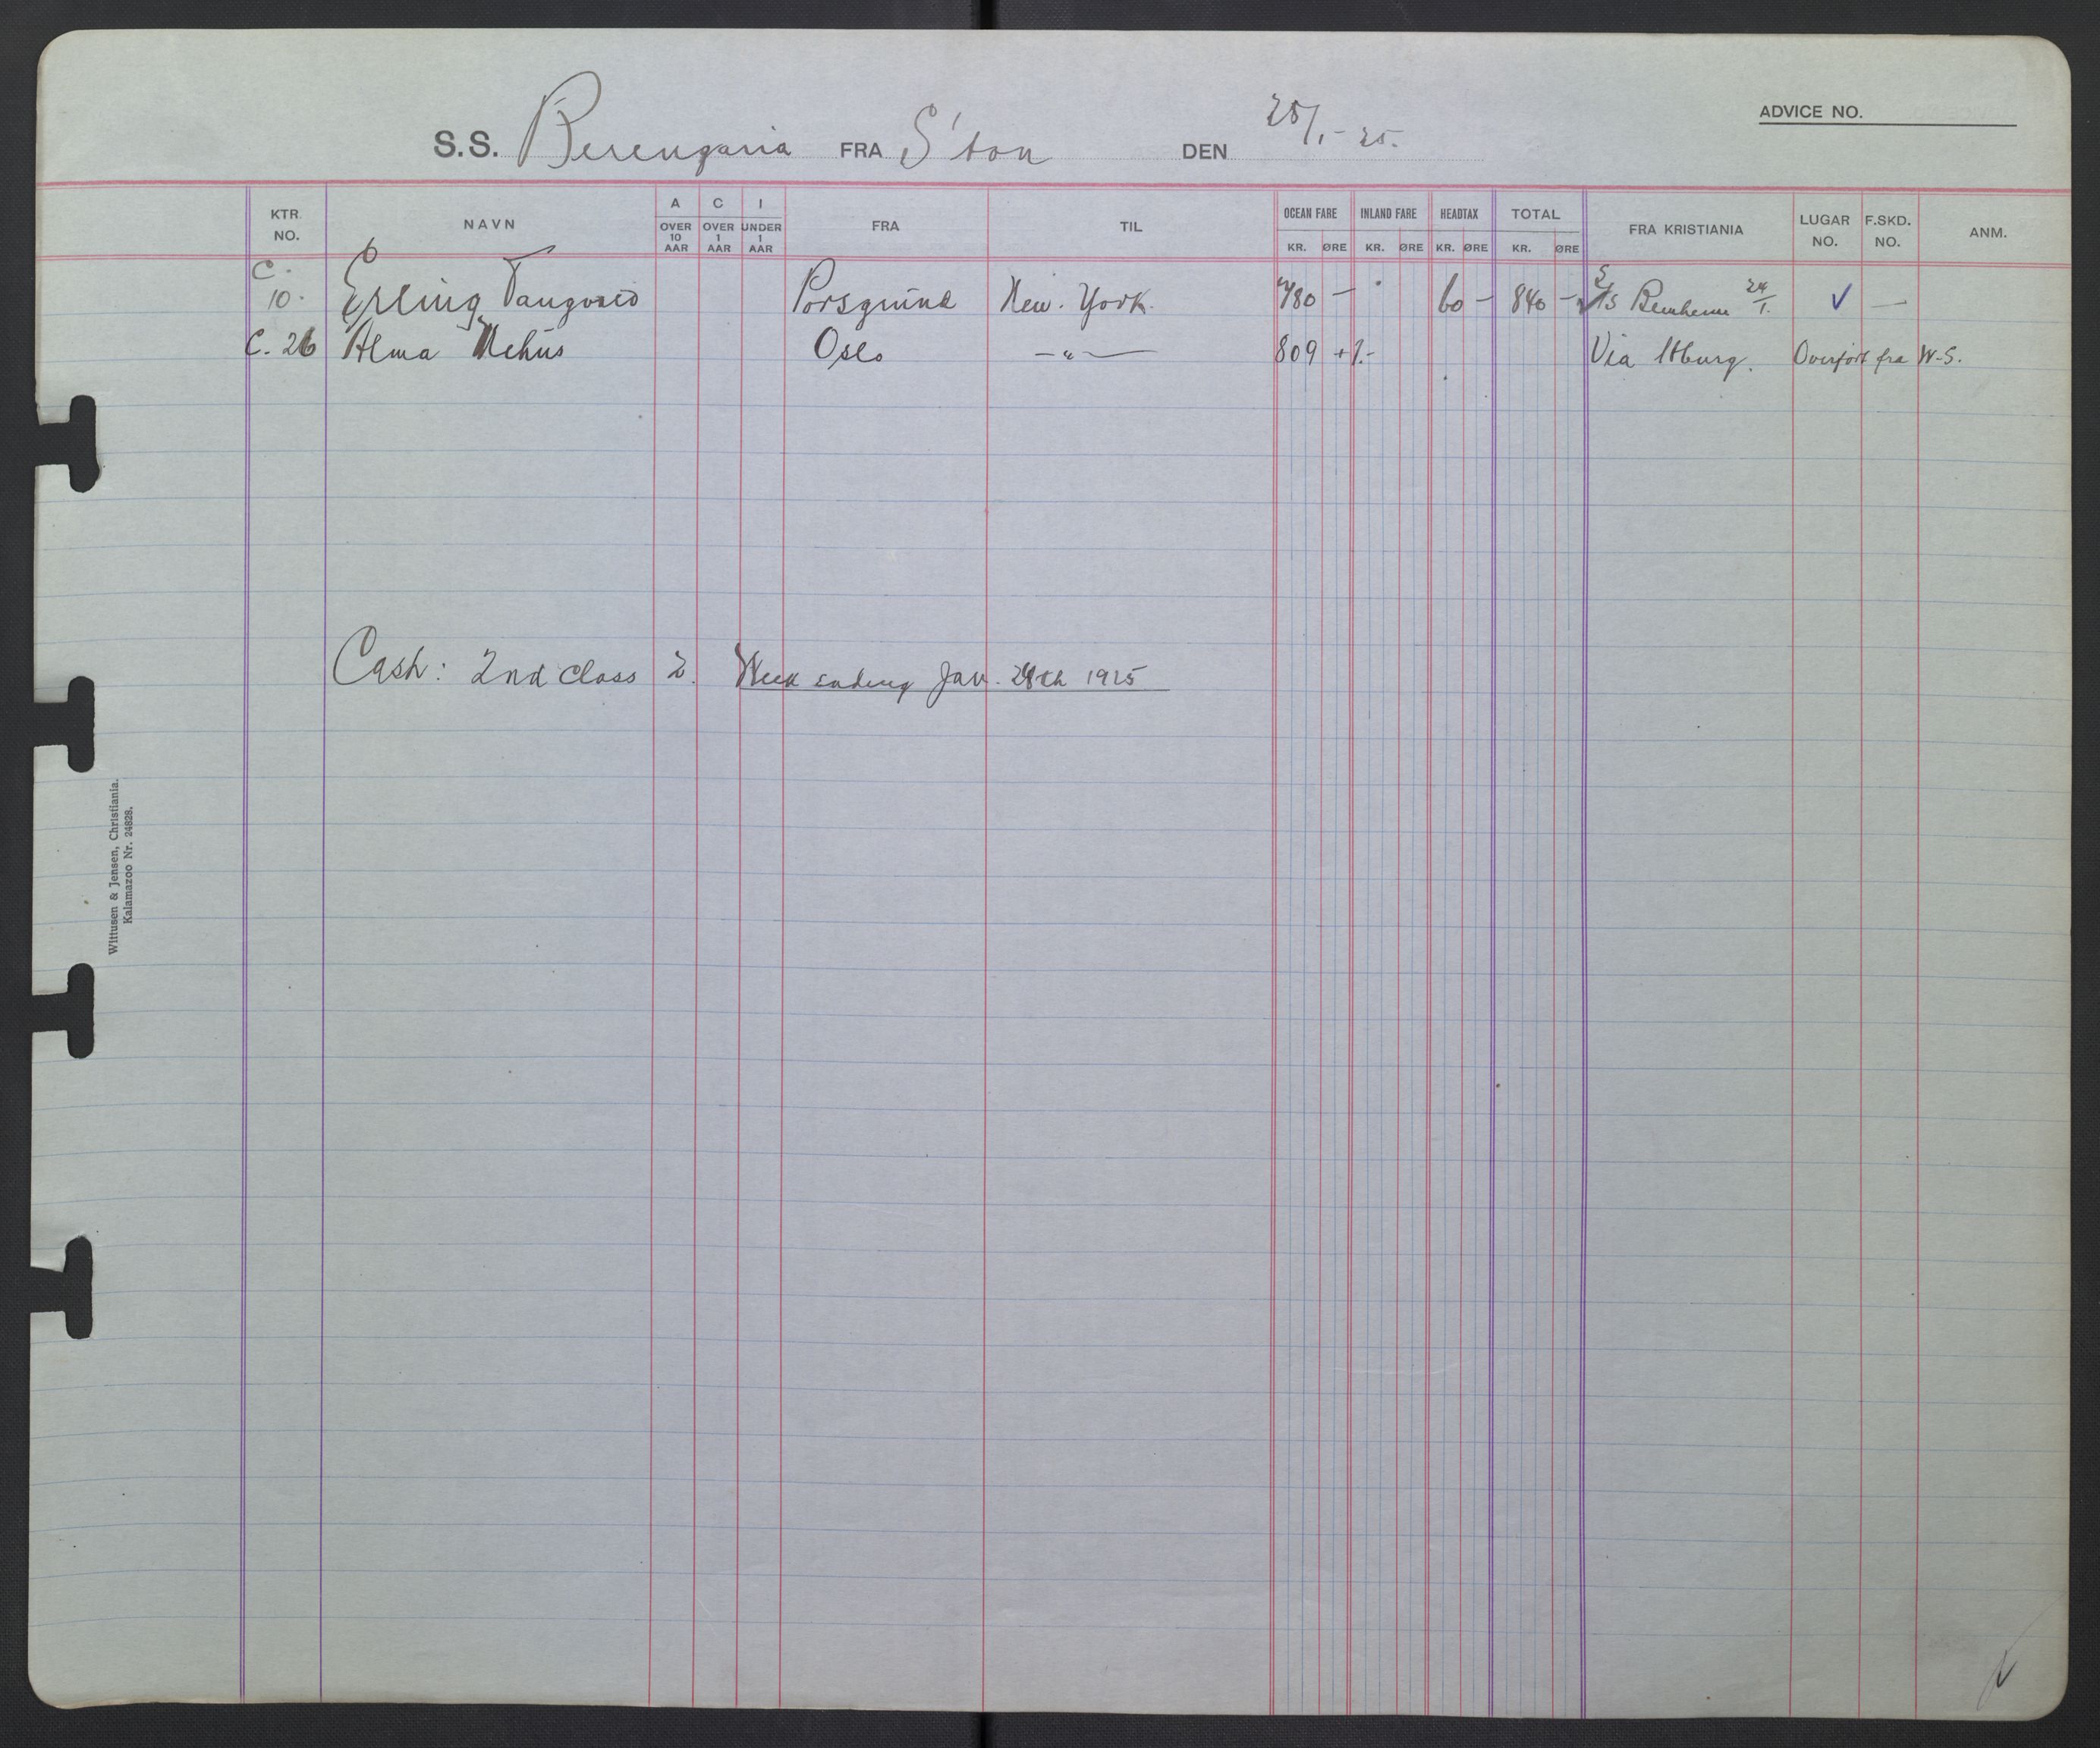 ADVICE NO.
S.S. Berengaria FRA S'ton DEN 28/1.- 25.
KTR. NO. NAVN A OVER 10 AAR C OVER 1 AAR I UNDER 1 AAR FRA TIL OCEAN FARE KR. ØRE INLAND FARE KR. ØRE HEADTAX KR. ØRE TOTAL KR. ØRE FRA KRISTIANIA LUGAR NO. F.SKD. NO. ANM.
C. 10. Erling Tangvald Porsgrund New. York. 780 — 60 — 840 — S/S 24/1. ✓ —
C. 26 Alma Nehus Oslo —"— 809 + 1.- Via Hburg. Overført fra W-S.
Cash: 2nd class 2. Week ending Jan. 28th 1925
Wittusen & Jensen, Christiania.
Kalamazoo Nr. 24828.